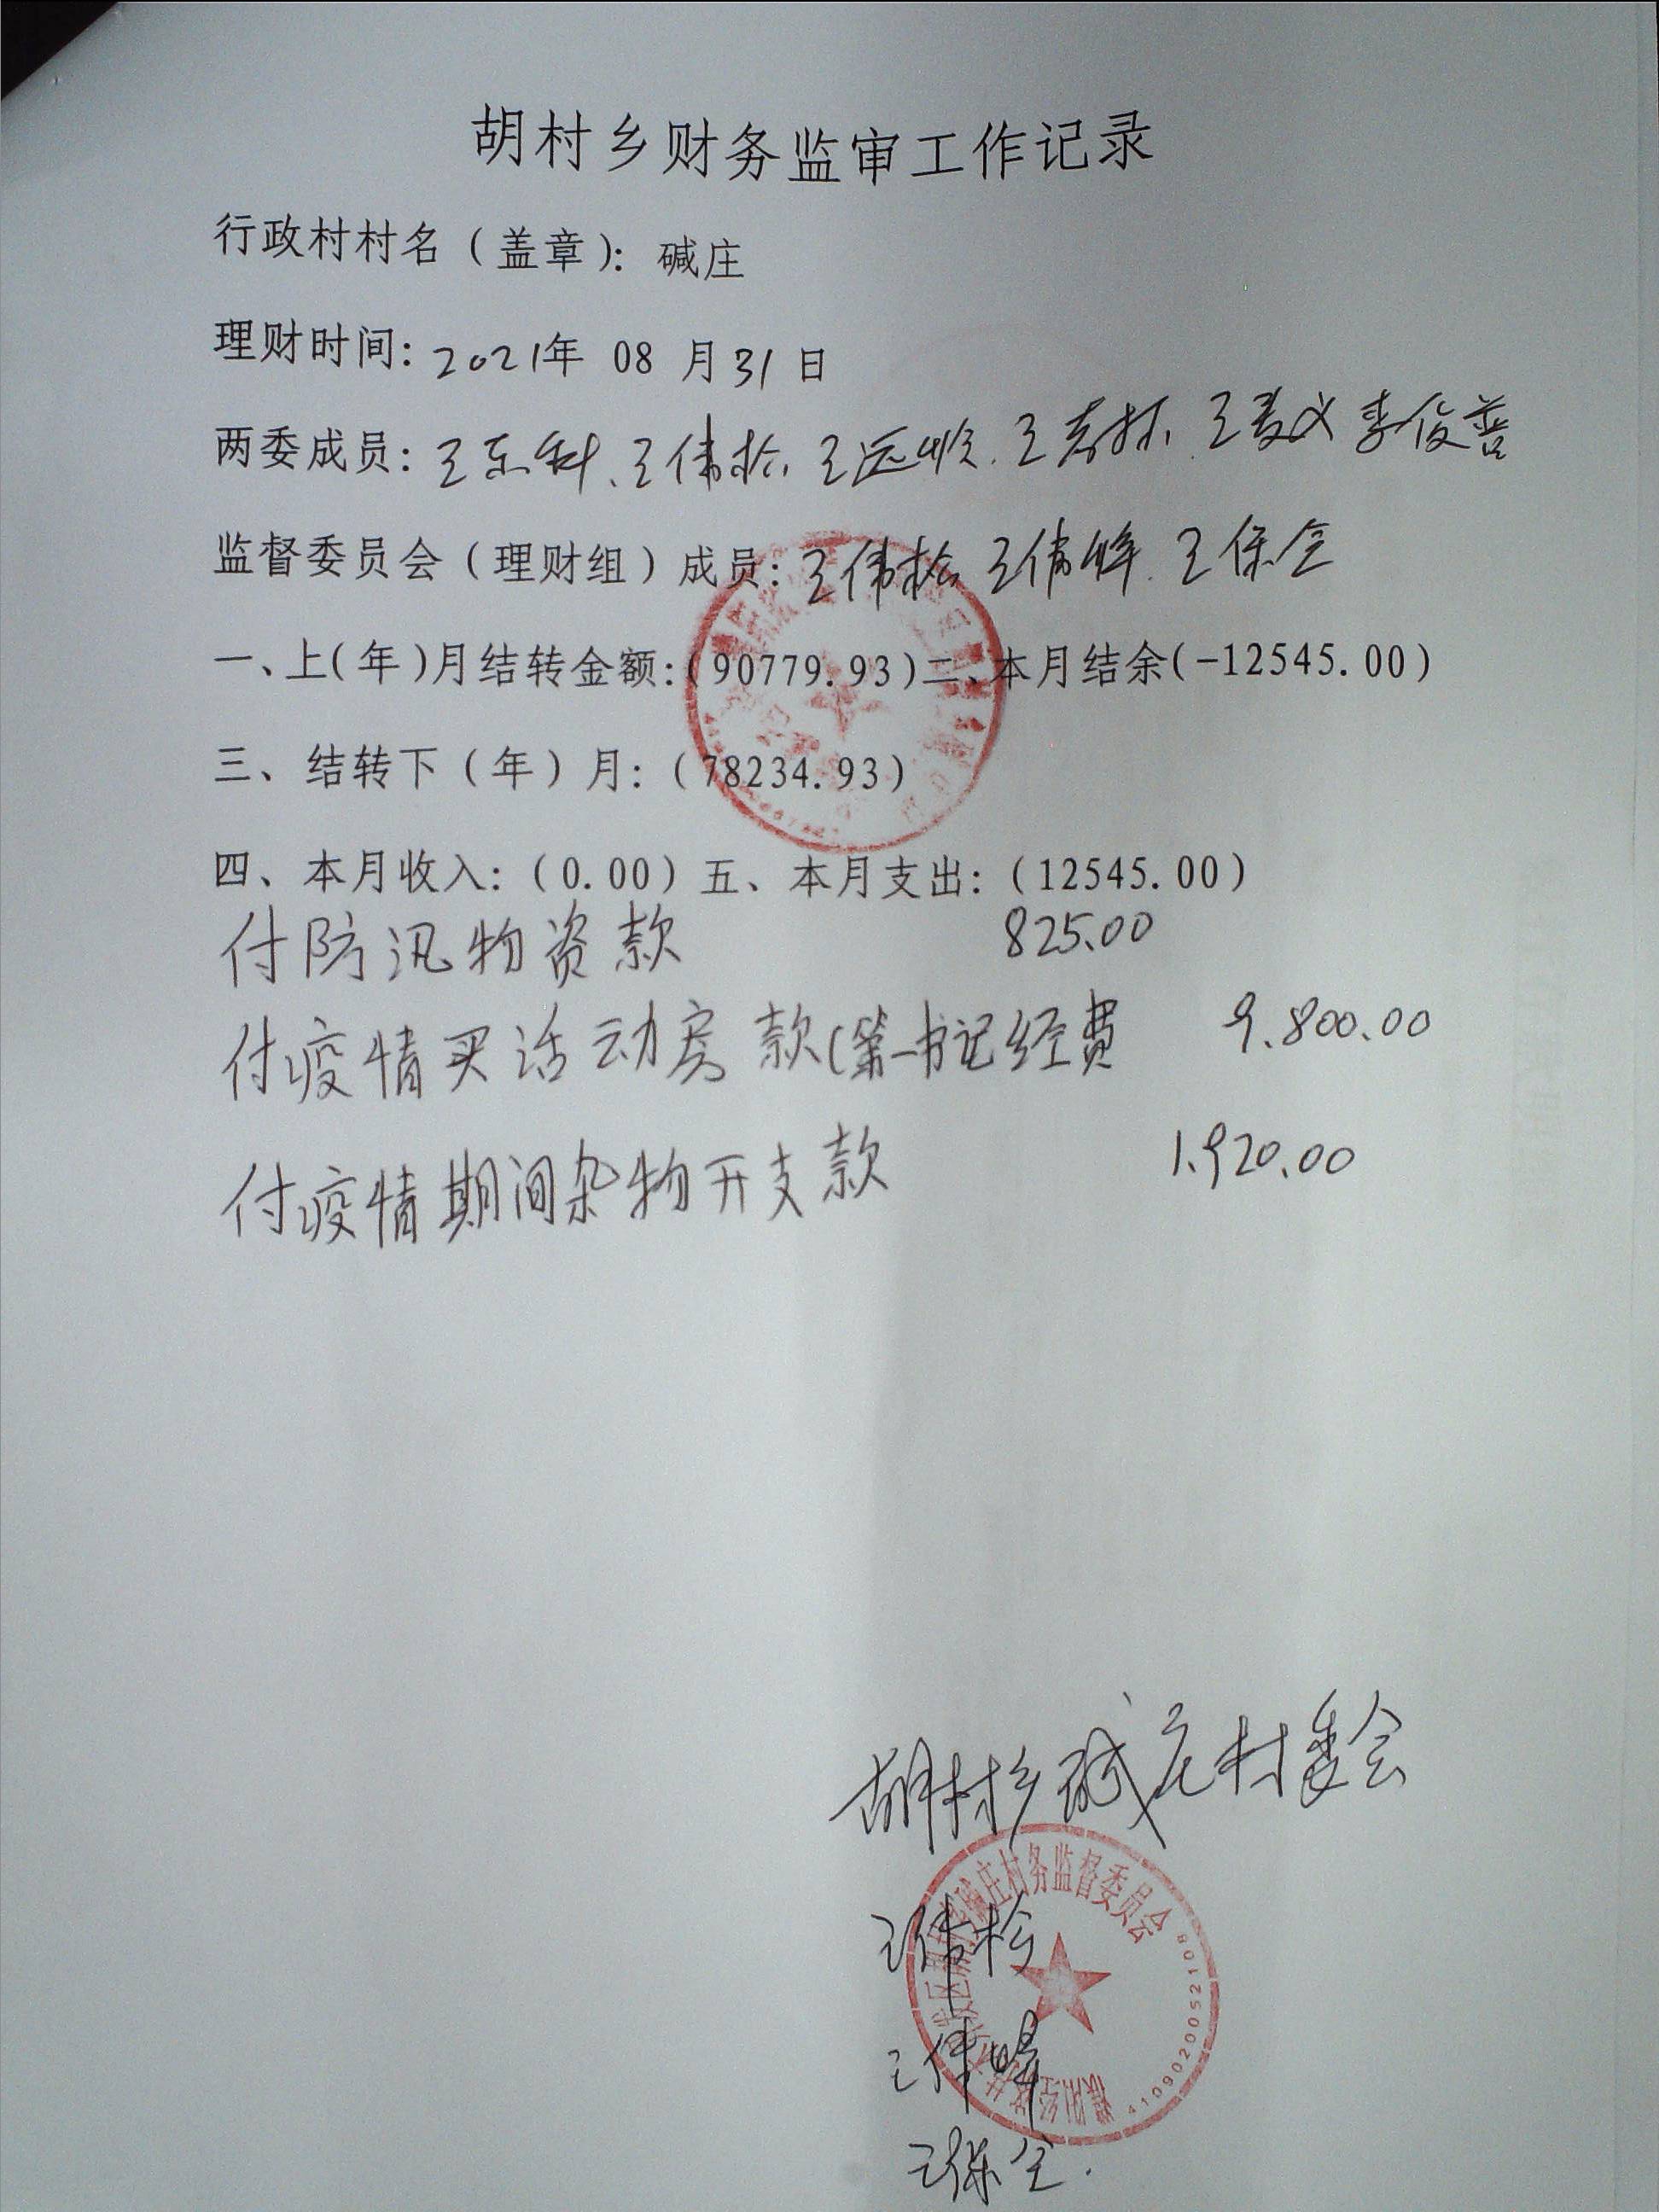 胡村乡财务监审工作记录
行政村村名（盖章）：碱庄
理财时间：2021年 08 月31日
两委成员：王东科、王伟拴、王远顺、王考林、王麦义 李俊善
监督委员会（理财组）成员：王伟拴 王伟峰、王保全
一、上(年)月结转金额：(90779.93)二、本月结余(-12545.00)
三、结转下（年）月：(78234.93)
四、本月收入：(0.00)五、本月支出：(12545.00)
付防汛物资款 825.00
付疫情买活动房款(第一书记经费 9.800.00
付疫情期间杂物开支款 1.920.00
胡村乡碱庄村委会
碱庄村务监督委员会
王伟拴
王伟峰
王保全.
4109020052108